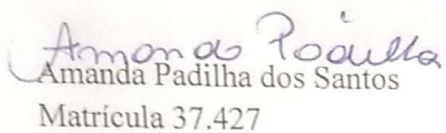 Amanda Padilha
Amanda Padilha dos Santos
Matrícula 37.427